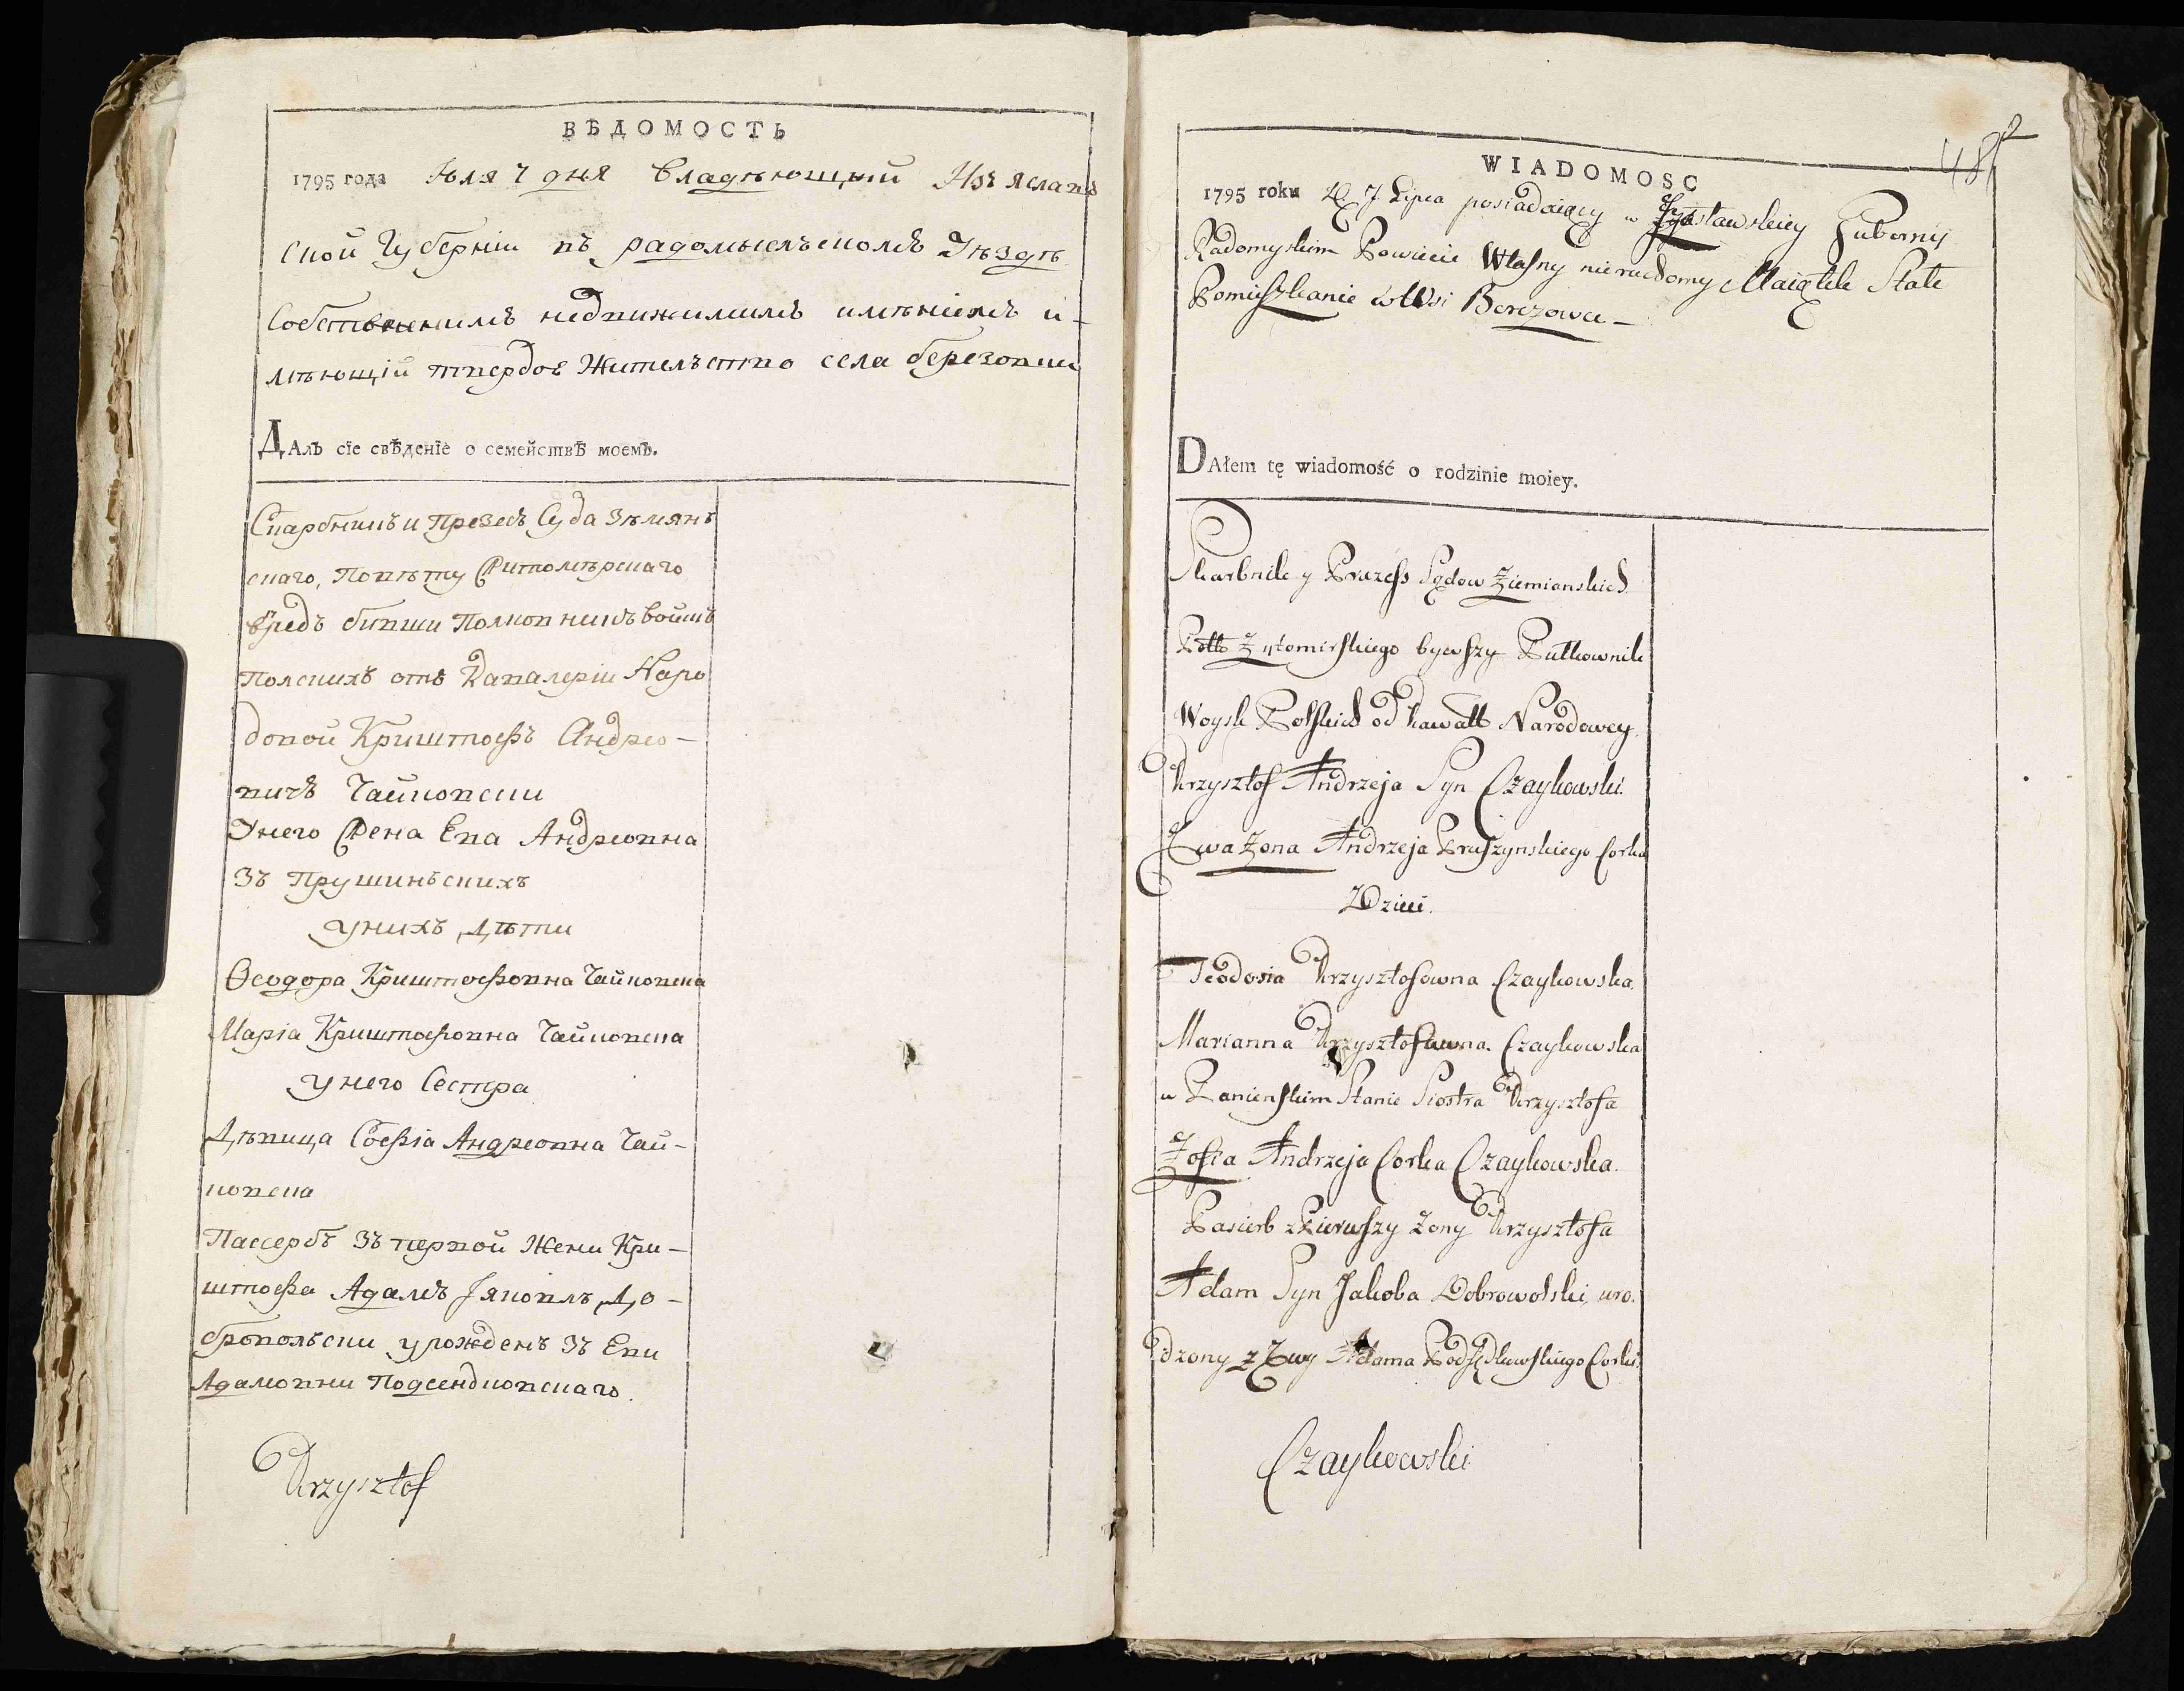 ВѢДОМОСТЬ
1795 года Юля 7 дня Владѣющый Изъяславъ
ской Губерніи въ радомыслъскомъ Уѣздѣ
Собственнимъ недвижимимъ имѣніемъ и-
мѣющій твердое Жителъство села березовки
ДАлЪ сїе свѣденїе о семействѣ моемЪ.
Скарбникъ и Презесъ Суда Зѣмянъ
скаго, Повѣту Житомѣрскаго
бывши Полковникъ войскъ
Полскихъ отъ Кавалеріи Наро
довой Криштофъ Андрео-
вичъ Чайковски
Унего Жена Ева Андреовна
Зъ Прушинъскихъ
унихъ Дѣти
Ѳеодора Криштофовна Чайковска
Марія Криштофовна Чайковска
унего Сестра
Дѣвица Софія Андреовна Чай-
ковска
Пассербъ Зъ первой Жени Кри-
штофа Адамъ Яковлъ До-
бровольски урожденъ Зъ Еви
Адамовни Подсендковскаго.
Krzysztof
482
WIADOMOSC
1795 roku D. 7 Lipca posiadaiący w Izasławskiey Guberny
Radomyskim Powiecie Własny nieruchomy Maiątek Stałe
Pomieszkanie w Wsi Berezowce -
DAłem tę wiadomość o rodzinie moiey.
Skarbnik y Prezess Sądow Ziemianskich
Pottu Zytomirskiego bywszy Pułkownik
Woysk Polskich od Kawall Narodowey
Krzysztof Andrzeja Syn Czaykowski.
Ewa Zona Andrzeja Pruszynskiego Corka
Dzieci.
Teodosia Krzysztofowna Czaykowska.
Marianna Krzysztofowna Czaykowska
w Panienskim Stanie Siostra Krzysztofa
Zofia Andrzeja Corka Czaykowska.
Pasierb z Pierwszy Zony Krzysztofa
Adam Syn Jakoba Dobrowolski, uro.
dzony z Ewy Adama Podsędkowskiego Corki.
Czaykowski